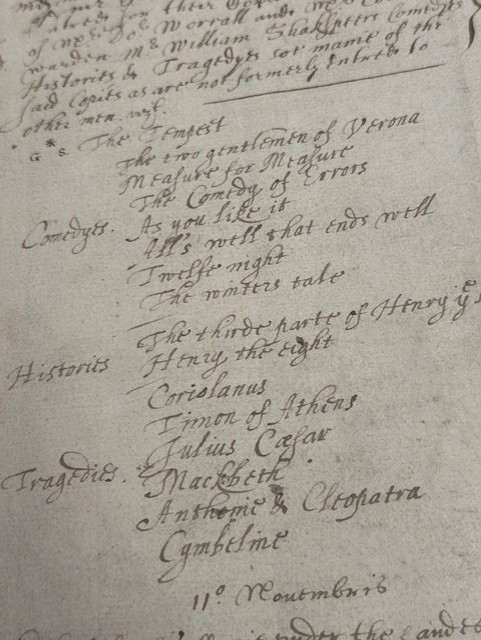 of Mr Do: Worrall and Mr
warden Mr William Shakspeers Comedyes
Histories & Tragedyes soe manie of the
said Copies as are not formerly entred to
other men. vizt.
The Tempest
The two gentlemen of Verona
Measure for Measure
The Comedy of Errors
Comedyes. As you like it
All's well that ends well
Twelfe night
The winters tale
The thirde parte of Henry ye
Histories Henry the eight
Coriolanus
Timon of Athens
Julius Cæsar
Tragedies. Mackbeth
Anthonie & Cleopatra
Cymbeline
11º. Novembris
under the handes